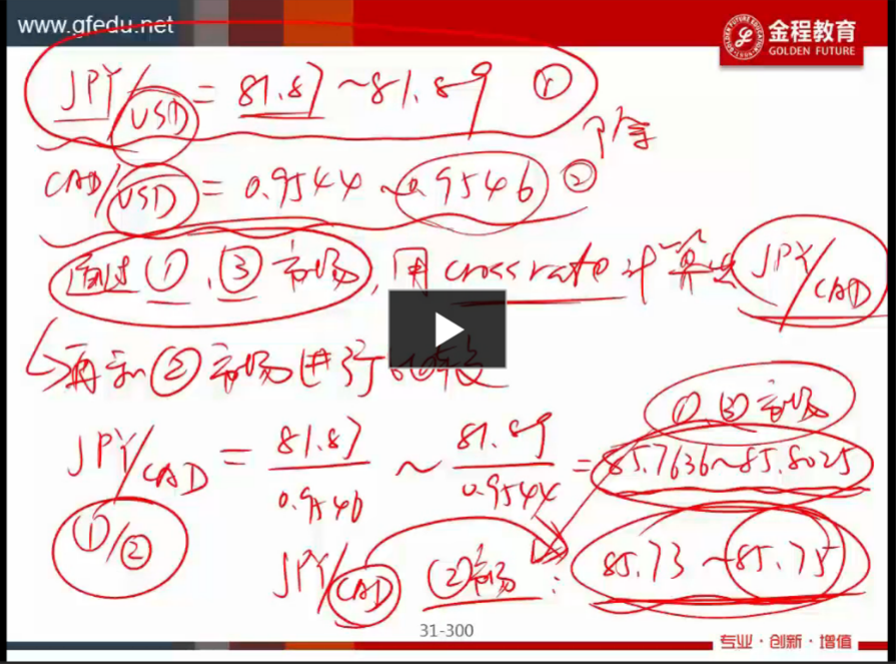 www.gfedu.net
金程教育
GOLDEN FUTURE
JPY/USD = 81.87 ~ 81.89 ①
个除
CAD/USD = 0.9544 ~ 0.9546 ②
通过①、③市场,用 cross rate 计算出 JPY/CAD
↳再和②市场进行比较
①、③市场
JPY/CAD = 81.87/0.9546 ~ 81.89/0.9544 = 85.7636~85.8025
①/②
JPY/CAD ②市场: 85.73 ~ 85.75
31-300
专业·创新·增值